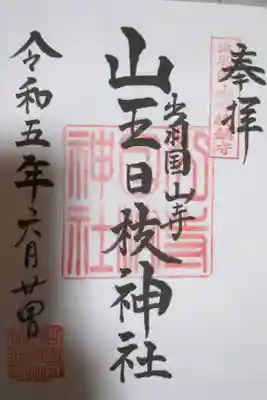 奉拝
出羽国山寺
山王日枝神社
令和五年六月廿四日